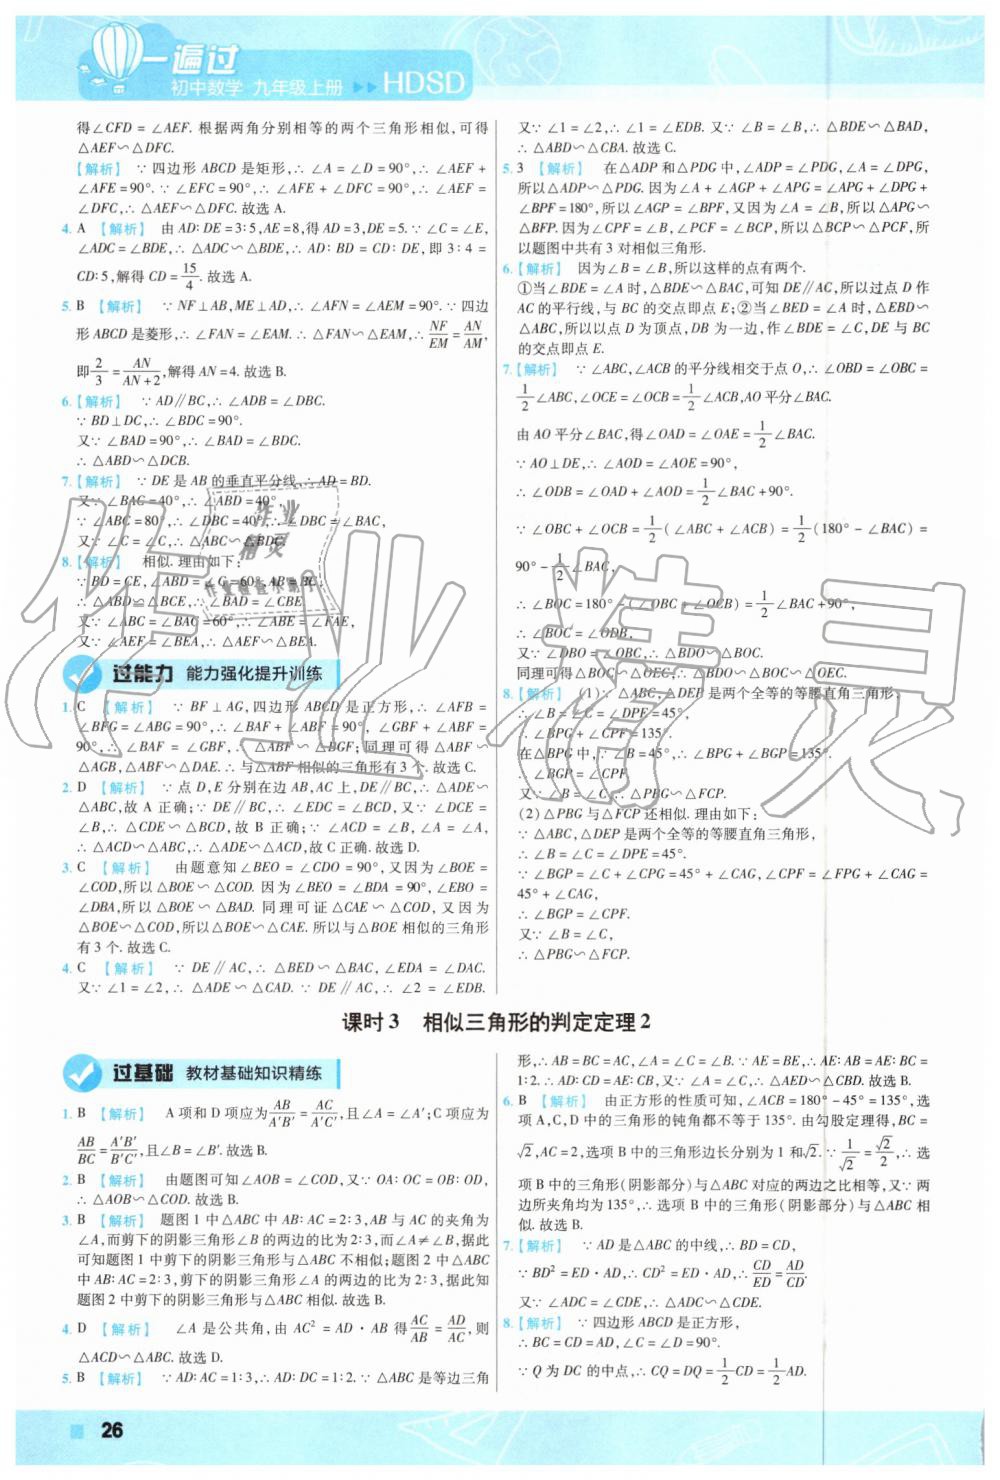 一遍过
初中数学 九年级上册 ▶▶ HDSD
得∠CFD = ∠AEF. 根据两角分别相等的两个三角形相似,可得
△AEF∽△DFC.
【解析】 ∵四边形 ABCD 是矩形,∴∠A = ∠D = 90°,∴∠AEF +
∠AFE = 90°. ∵∠EFC = 90°,∴∠AFE + ∠DFC = 90°,∴∠AEF =
∠DFC,∴△AEF∽△DFC. 故选 A.
4. A 【解析】 由 AD:DE = 3:5,AE = 8,得 AD = 3,DE = 5. ∵∠C = ∠E,
∠ADC = ∠BDE,∴△ADC∽△BDE,∴AD:BD = CD:DE,即 3:4 =
CD:5,解得 CD = 15/4. 故选 A.
5. B 【解析】 ∵NF⊥AB,ME⊥AD,∴∠AFN = ∠AEM = 90°. ∵四边
形 ABCD 是菱形,∴∠FAN = ∠EAM.∴△FAN∽△EAM,∴NF/EM = AN/AM,
即 2/3 = AN/(AN+2),解得 AN = 4. 故选 B.
6.【解析】 ∵AD∥BC,∴∠ADB = ∠DBC.
∵BD⊥DC,∴∠BDC = 90°.
又∵∠BAD = 90°,∴∠BAD = ∠BDC.
∴△ABD∽△DCB.
7.【解析】 ∵DE 是 AB 的垂直平分线,∴AD = BD.
又∵∠BAC = 40°,∴∠ABD = 40°.
∵∠ABC = 80°,∴∠DBC = 40°,∴∠DBC = ∠BAC,
又∵∠C = ∠C,∴△ABC∽△BDC.
8.【解析】 相似. 理由如下:
∵BD = CE,∠ABD = ∠C = 60°,AB = BC,
∴△ABD≌△BCE,∴∠BAD = ∠CBE.
又∵∠ABC = ∠BAC = 60°,∴∠ABE = ∠FAE,
又∵∠AEF = ∠BEA,∴△AEF∽△BEA.
过能力 能力强化提升训练
1. C 【解析】 ∵BF⊥AG,四边形 ABCD 是正方形,∴∠AFB =
∠BFG = ∠ABG = 90°,∴∠BAF + ∠ABF = 90°,∠GBF + ∠ABF =
90°,∴∠BAF = ∠GBF,∴△ABF∽△BGF;同理可得△ABF∽
△AGB,△ABF∽△DAE.∴与△ABF 相似的三角形有 3 个. 故选 C.
2. D 【解析】 ∵点 D,E 分别在边 AB,AC 上,DE∥BC,∴△ADE∽
△ABC,故 A 正确;∵DE∥BC,∴∠EDC = ∠BCD,又∵∠DCE =
∠B,∴△CDE∽△BCD,故 B 正确;∵∠ACD = ∠B,∠A = ∠A,
∴△ACD∽△ABC,∴△ADE∽△ACD,故 C 正确. 故选 D.
3. C 【解析】 由题意知∠BEO = ∠CDO = 90°,又因为∠BOE =
∠COD,所以△BOE∽△COD. 因为∠BEO = ∠BDA = 90°,∠EBO =
∠DBA,所以△BOE∽△BAD. 同理可证△CAE∽△COD,又因为
△BOE∽△COD,所以△BOE∽△CAE. 所以与△BOE 相似的三角形
有 3 个. 故选 C.
4. C 【解析】 ∵DE∥AC,∴△BED∽△BAC,∠EDA = ∠DAC.
又∵∠1 = ∠2,∴△ADE∽△CAD. ∵DE∥AC,∴∠2 = ∠EDB.
又∵∠1 = ∠2,∴∠1 = ∠EDB. 又∵∠B = ∠B,∴△BDE∽△BAD,
∴△ABD∽△CBA. 故选 C.
5. 3 【解析】 在△ADP 和△PDG 中,∠ADP = ∠PDG,∠A = ∠DPG,
所以△ADP∽△PDG. 因为∠A + ∠AGP + ∠APG = ∠APG + ∠DPG +
∠BPF = 180°,所以∠AGP = ∠BPF,又因为∠A = ∠B,所以△APG∽
△BFP. 因为∠CPF = ∠B,∠PCF = ∠BCP,所以△BCP∽△PCF,所
以题图中共有 3 对相似三角形.
6.【解析】 因为∠B = ∠B,所以这样的点有两个.
①当∠BDE = ∠A 时,△BDE∽△BAC,可知 DE∥AC,所以过点 D 作
AC 的平行线,与 BC 的交点即点 E;②当∠BED = ∠A 时,△EBD∽
△ABC,所以以点 D 为顶点,DB 为一边,作∠BDE = ∠C,DE 与 BC
的交点即点 E.
7.【解析】 ∵∠ABC,∠ACB 的平分线相交于点 O,∴∠OBD = ∠OBC =
1/2∠ABC,∠OCE = ∠OCB = 1/2∠ACB,AO 平分∠BAC.
由 AO 平分∠BAC,得∠OAD = ∠OAE = 1/2∠BAC.
∵AO⊥DE,∴∠AOD = ∠AOE = 90°,
∴∠ODB = ∠OAD + ∠AOD = 1/2∠BAC + 90°.
∵∠OBC + ∠OCB = 1/2(∠ABC + ∠ACB) = 1/2(180° − ∠BAC) =
90° − 1/2∠BAC,
∴∠BOC = 180° − (∠OBC + ∠OCB) = 1/2∠BAC + 90°,
∴∠BOC = ∠ODB,
又∵∠DBO = ∠OBC,∴△BDO∽△BOC.
同理可得△BOC∽△OEC,∴△BDO∽△BOC∽△OEC.
8.【解析】 (1)∵△ABC,△DEP 是两个全等的等腰直角三角形,
∴∠B = ∠C = ∠DPE = 45°,
∴∠BPG + ∠CPF = 135°.
在△BPG 中,∵∠B = 45°,∴∠BPG + ∠BGP = 135°,
∴∠BGP = ∠CPF.
又∵∠B = ∠C,∴△PBG∽△FCP.
(2)△PBG 与△FCP 还相似. 理由如下:
∵△ABC,△DEP 是两个全等的等腰直角三角形,
∴∠B = ∠C = ∠DPE = 45°.
∵∠BGP = ∠C + ∠CPG = 45° + ∠CAG,∠CPF = ∠FPG + ∠CAG =
45° + ∠CAG,
∴∠BGP = ∠CPF.
又∵∠B = ∠C,
∴△PBG∽△FCP.
课时 3 相似三角形的判定定理 2
过基础 教材基础知识精练
1. B 【解析】 A 项和 D 项应为 AB/A′B′ = AC/A′C′,且∠A = ∠A′;C 项应为
AB/BC = A′B′/B′C′,且∠B = ∠B′. 故选 B.
2. B 【解析】 由题图可知∠AOB = ∠COD,又∵OA:OC = OB:OD,
∴△AOB∽△COD. 故选 B.
3. B 【解析】 题图 1 中△ABC 中 AB:AC = 2:3,AB 与 AC 的夹角为
∠A,而剪下的阴影三角形∠B 的两边的比为 2:3,而∠A≠∠B,据此
可知题图 1 中剪下的阴影三角形与△ABC 不相似;题图 2 中△ABC
中 AB:AC = 2:3,剪下的阴影三角形∠A 的两边的比为 2:3,据此知
题图 2 中剪下的阴影三角形与△ABC 相似. 故选 B.
4. D 【解析】 ∠A 是公共角,由 AC² = AD·AB 得 AC/AB = AD/AC,则
△ACD∽△ABC. 故选 D.
5. B 【解析】 ∵AD:AC = 1:3,∴AD:DC = 1:2. ∵△ABC 是等边三角
形,∴AB = BC = AC,∠A = ∠C = ∠B. ∵AE = BE,∴AE:AB = AE:BC =
1:2. ∴AD:CD = AE:BC,又∵∠A = ∠C,∴△AED∽△CBD. 故选 B.
6. B 【解析】 由正方形的性质可知,∠ACB = 180° − 45° = 135°,选
项 A,C,D 中的三角形的钝角都不等于 135°. 由勾股定理得,BC =
√2,AC = 2,选项 B 中的三角形边长分别为 1 和√2. ∵1/√2 = √2/2,∴选
项 B 中的三角形(阴影部分)与△ABC 对应的两边之比相等,又∵两
边所夹角均为 135°,∴选项 B 中的三角形(阴影部分)与△ABC 相
似. 故选 B.
7.【解析】 ∵AD 是△ABC 的中线,∴BD = CD,
∵BD² = ED·AD,∴CD² = ED·AD,∴CD/ED = AD/CD.
又∵∠ADC = ∠CDE,∴△ADC∽△CDE.
8.【解析】 ∵四边形 ABCD 是正方形,
∴BC = CD = AD,∠C = ∠D = 90°.
∵Q 为 DC 的中点,∴CQ = DQ = 1/2CD = 1/2AD.
26
作业精灵
作业
精灵